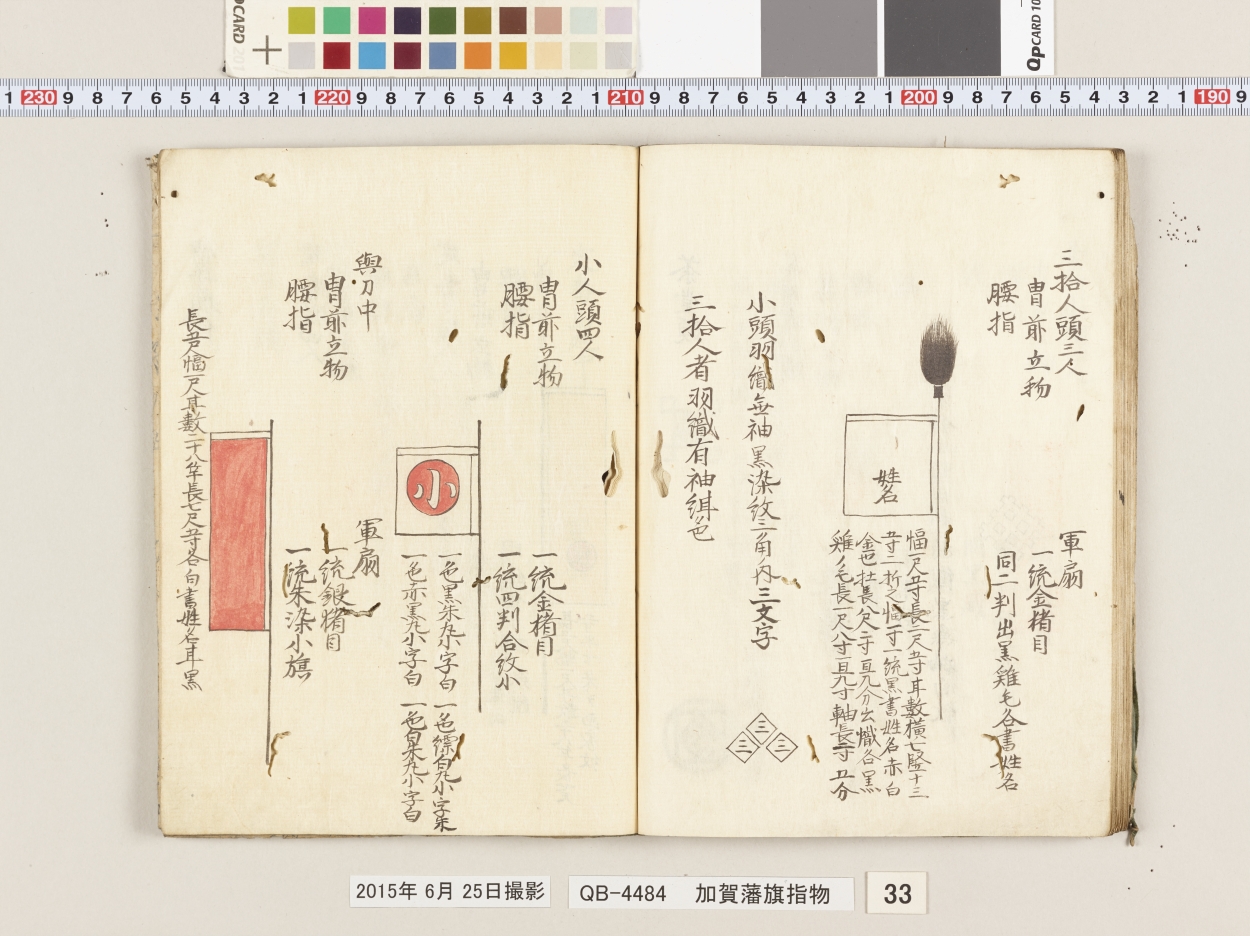 QPCARD 201
QPCARD 10
1 230 9 8 7 6 5 4 3 2 1 220 9 8 7 6 5 4 3 2 1 210 9 8 7 6 5 4 3 2 1 200 9 8 7 6 5 4 3 2 1 190 9
三拾人頭三人
冑前立物
腰指
軍扇
一統金猪目
同二判出黒雞毛各書姓名
姓名
幅一尺五寸長二尺五寸耳数横七竪十三
五寸二折之幅寸一統黒書姓名赤白
雞ノ毛長一尺八寸亘九寸軸長二寸五分
小頭羽織無袖黒染紋三角内三文字
三拾人者羽織有袖缾色
三
三
三
小人頭四人
冑前立物
腰指
一統金猪目
一統四判合紋小
小
一色黒朱丸小字白
一色縹白丸小字朱
一色赤黒丸小字白
一色白朱丸小字白
與力中
冑前立物
腰指
軍扇
一統銀猪目
一統朱染小旗
長五尺幅一尺耳数二十八竿長七尺五寸各白書姓名耳黒
2015年 6月 25日撮影
QB-4484 加賀藩旗指物
33